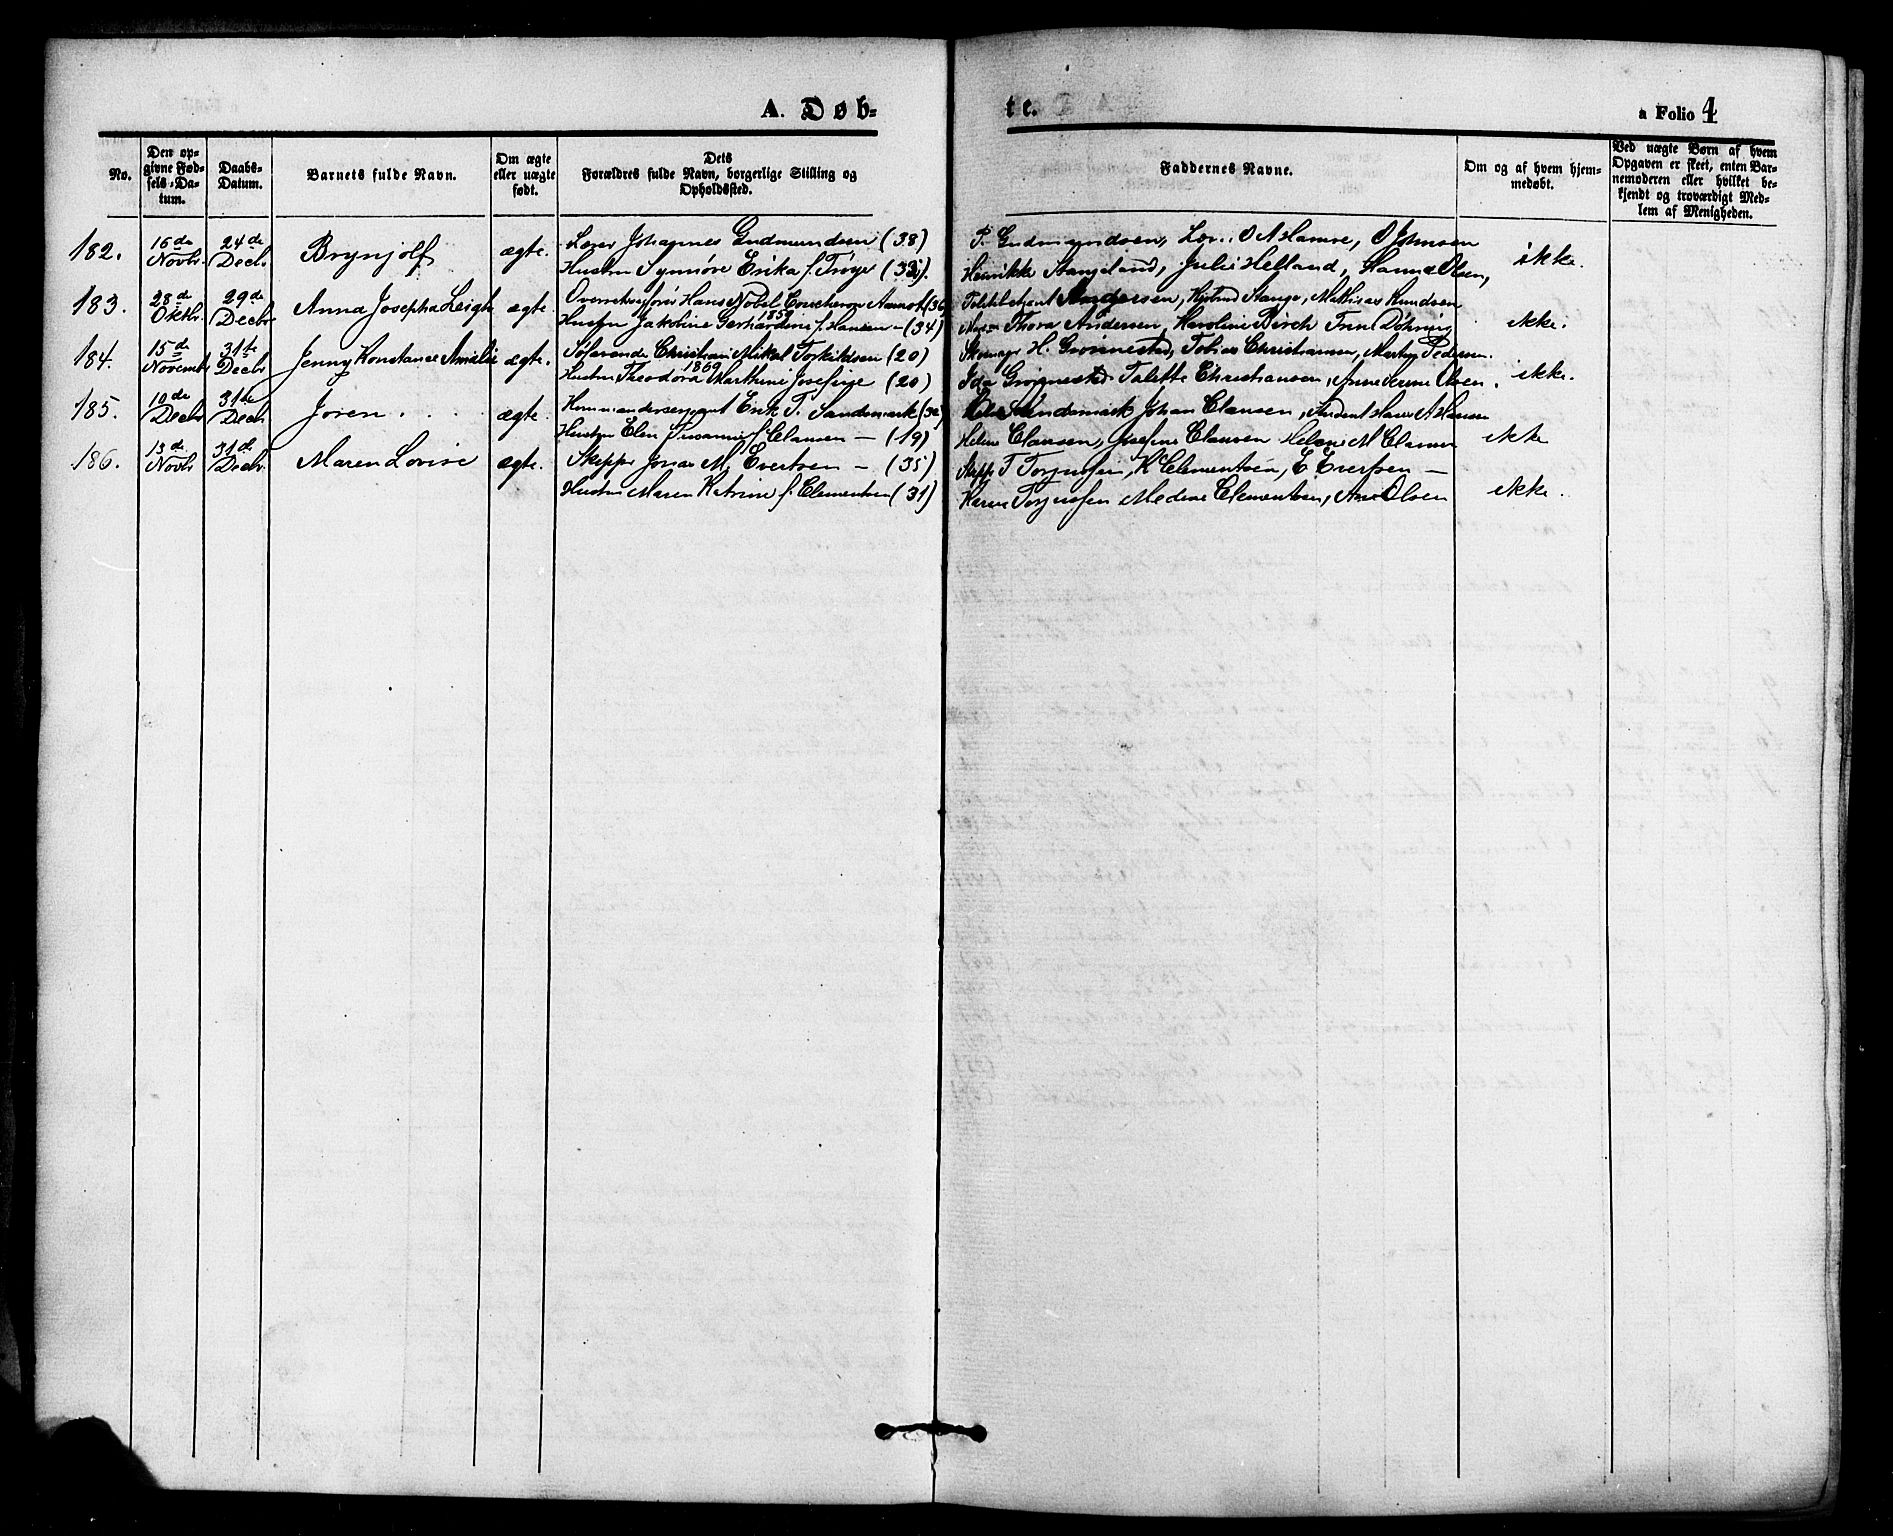 A. Døb=
te.
a Folio 4
No.
Den op-
givne Fød-
sels-Da-
tum.
Daabs-
Datum.
Barnets fulde Navn.
Om ægte
eller uægte
født.
Dets
Forældres fulde Navn, borgerlige Stilling og
Opholdssted.
Faddernes Navne.
Om og af hvem hjem-
medøbt.
Ved uægte Børn af hvem
Opgaven er skeet, enten Bar-
nemoderen eller hvilket be-
kjendt og troværdigt Med-
lem af Menigheden.
182. 16de Novbr. 24de Decbr Brynjolf ægte. Lærer Johannes Gudmundsen (38)
Hustru Synnøve Erika f. Trøye
P. Gudmundsen, O A Hamre, O Johnsen
Henrikke Stangeland, Julie Helland, Hanna Olsen,
ikke.
183. 28de Oktbr. 29de Decbr Anna Josepha Leigh ægte. Hans Nobel Coucheron Aamot
1859
Hustru Jakobine Gerhardine f. Hansen - (34)
Andersen, Stange, Mathias Knudsen
Thora Andersen, Karoline Birch Døhring
ikke.
184. 15de Novembr 31te Decbr Jenny Konstance Amalie ægte. Søfarende Christian Mikal Torkildsen (20)
1869
Hustru Theodora Marthine Josefine (20)
Skomager H. Grønnestad, Tobias Christiansen, Martin Pedersen.
Ida Grønnestad Talette Christiansen, Anne Serine Olsen.
ikke.
185. 10de Decbr 31de Decbr Joren ægte. Kommandersergant Erik T. Sandsmark
Hustru Elen Susanne f. Clausen - (19)
Sandsmark Johan Clausen, Student Hans A Hansen
Helene Clausen, Josefine Clausen Helene M Clausen
ikke
186. 13de Novbr 31de Decbr. Maren Lovise ægte. Skipper Jonas M. Evertsen - (35)
Hustru Maren Katrine f. Clementsen (31)
Skipper T Torjussen, K Clementsen, E Evertsen -
Karen Torjussen Medine Clementsen, Olsen
ikke.